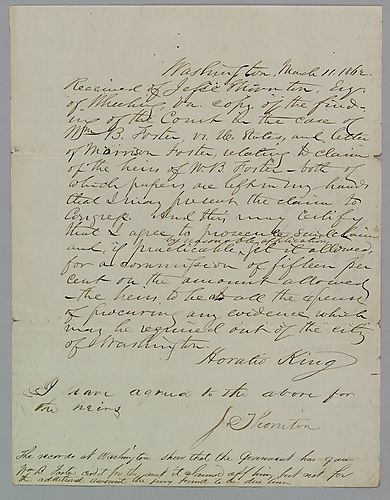 Washington, March 11. 1862.
Received of Jesse Thornton, Esq.
of Wheeling, Va. copy of the find-
ing of the Court in the case of
Wm. B. Foster, vs. U. States, and letter
of Morrison Foster, relating to claim
of the heirs of W. B. Foster — both of
which papers are left in my hands
that I may present the claim to
Congress. And this may certify
that I agree to prosecute said claim
by reasonable application
and, if practicable, get it allowed
for a commission of fifteen per
cent on the amount allowed
— the heirs to be at all the expense
of procuring any evidence which
may be required out of the city
of Washington
Horatio King
I have agreed to the above for
the heirs
J. Thornton
The records at Washington show that the Government has given
Wm B Foster credit for the amt it claimed of him, but not for
the additional amount the jury found to be due him